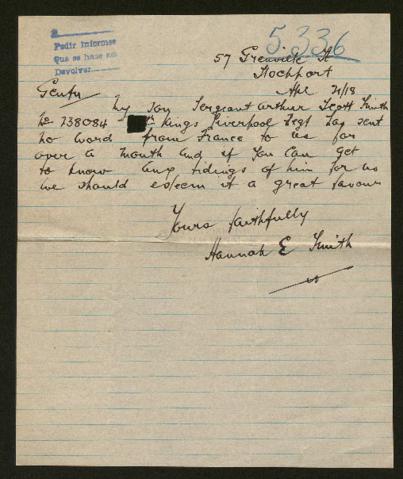 2
Pedir Informes
Que se hace
Devolver
5.336
57 Grenville St
Stockport
Apl /18
Gentn
My son Sergeant Arthur Scott Smith
No 738084 Kings Liverpool Regt has sent
no word from France to us for
over a month and if you can get
to know any tidings of him for us
we should esteem it a great favour
Yours faithfully
Hannah E Smith